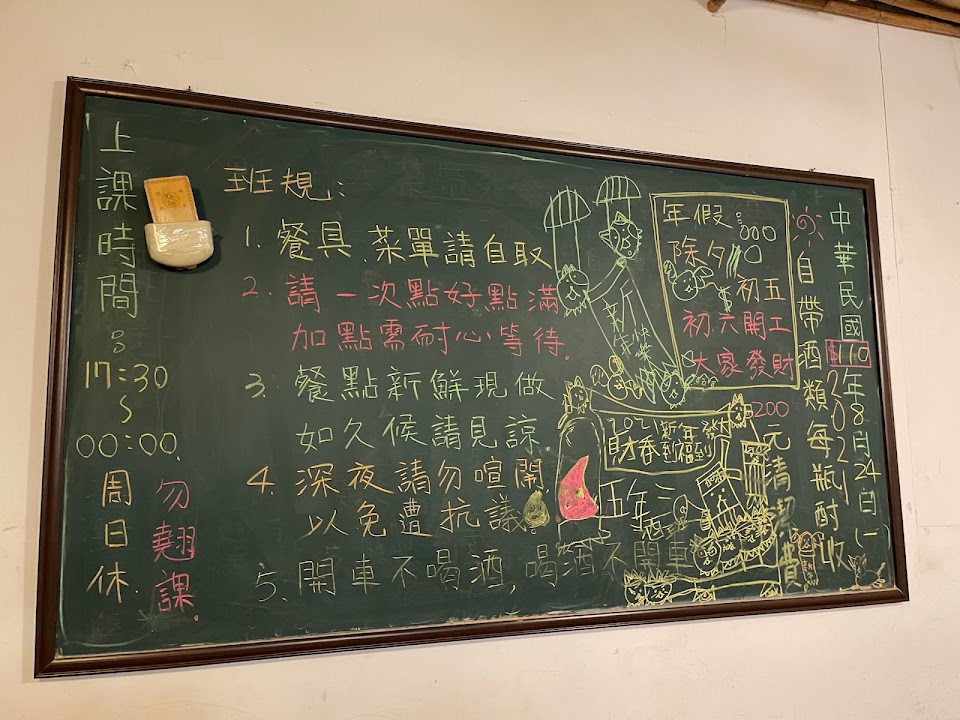 上課時間:
17:30
~
00:00.
周日休.
勿翹課.
班規:
1. 餐具.菜單請自取
2. 請一次點好點滿
加點需耐心等待.
3. 餐點新鮮現做
如久候請見諒
4. 深夜請勿喧鬧
以免遭抗議
5. 開車不喝酒,喝酒不開車
新年快樂
年假:
除夕
~初五
初六開工
大家發財
2021新年發大
財春到福到
五年三
自帶酒類每瓶酌收
200元清潔費
中華民國110年8月24日(一)
2021